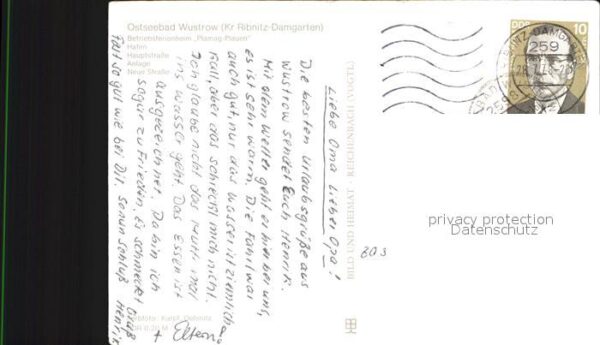 Ostseebad Wustrow (Kr Ribnitz-Damgarten)
Betriebsferienheim „Plamag-Plauen"
Hafen
Hauptstraße
Anlage
Neue Straße
DDR 10
259
BILD UND HEIMAT · REICHENBACH (VOGTL)
Liebe Oma lieber Opa!
Die besten Urlaubsgrüße aus
Wustrow sendet Euch Henrik.
Mit dem Wetter geht er hier bei uns,
es ist sehr warm. Die Fahrt war
auch gut, nur das Wasser ist ziemlich
kühl, aber das schreckt mich nicht.
Ich glaube nicht das Mutti mal
ins Wasser geht. Das Essen ist
ausgezeichnet. Da bin ich
sogar zufrieden. Es schmeckt
Fast so gut wie bei Dir. So nun Schluß
Gruß
Henrik
+ Eltern!
803
privacy protection
Datenschutz